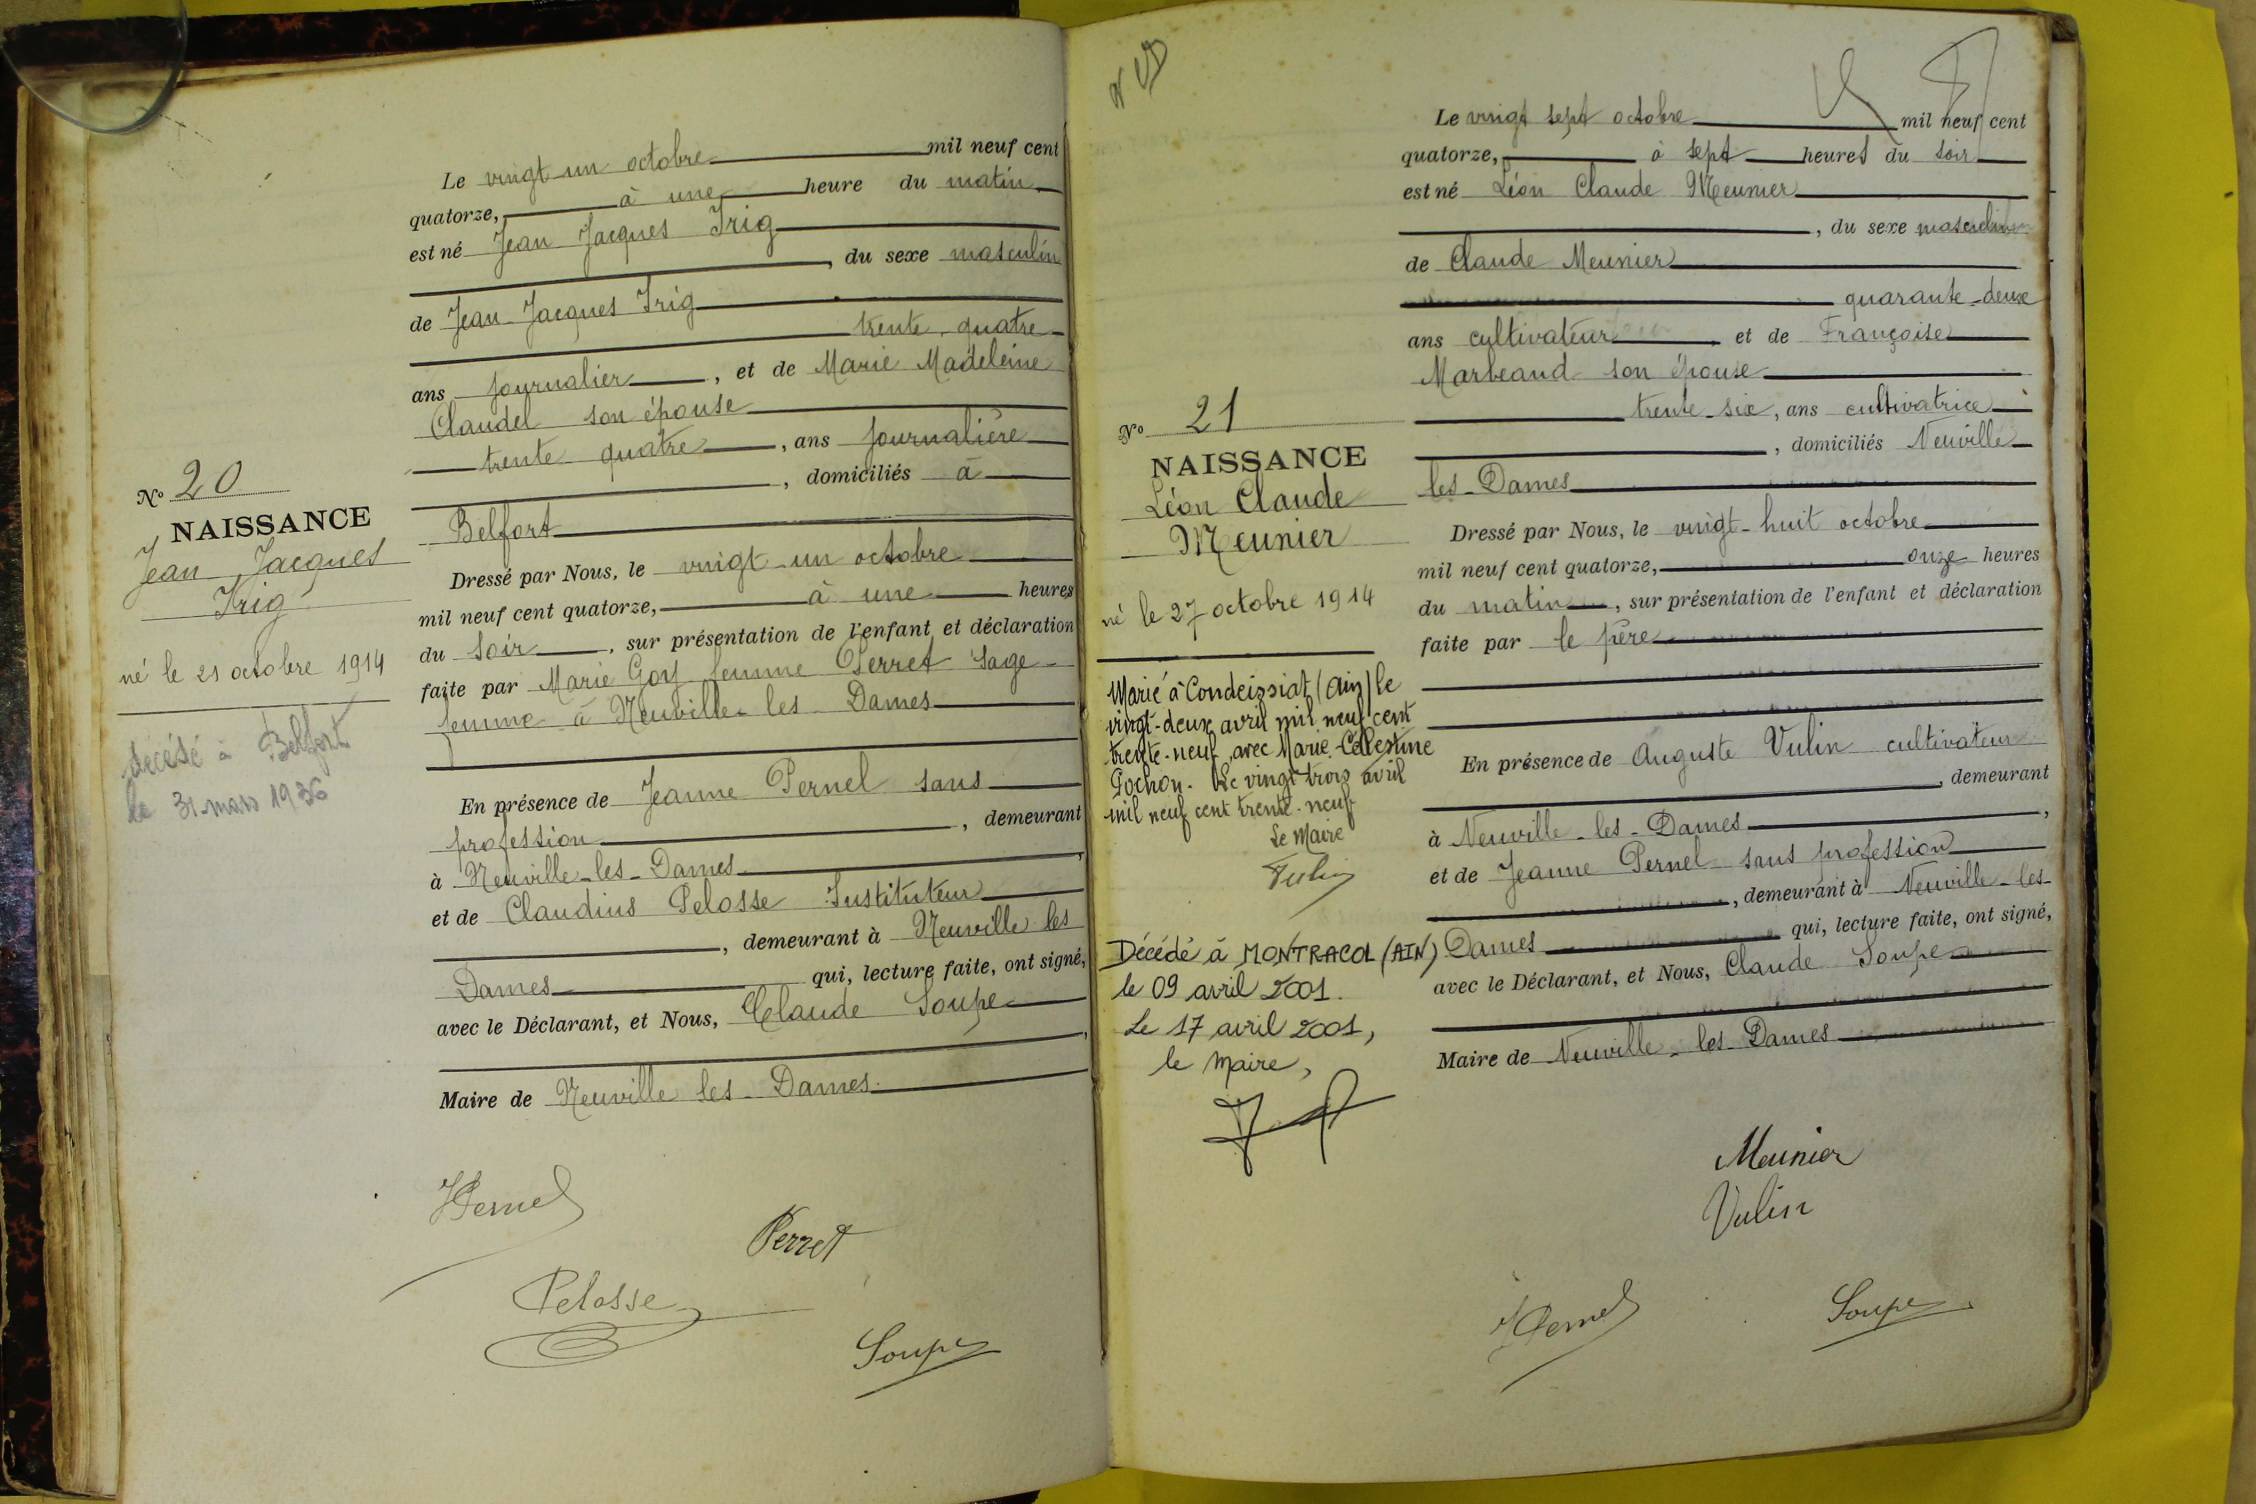 Le vingt un octobre mil neuf cent
quatorze, à une heure du matin
est né Jean Jacques Irig
, du sexe masculin
de Jean Jacques Irig
trente quatre
ans journalier, et de Marie Madeleine
Claudel son épouse
trente quatre, ans journalière
, domiciliés à
Belfort
Dressé par Nous, le vingt-un octobre
mil neuf cent quatorze, à une heures
du soir, sur présentation de l'enfant et déclaration
faite par Marie Goy femme Perret sage-
femme à Neuville-les-Dames
En présence de Jeanne Pernel sans
profession, demeurant
à Neuville-les-Dames,
et de Claudius Pelosse Instituteur
, demeurant à Neuville les
Dames qui, lecture faite, ont signé,
avec le Déclarant, et Nous, Claude Soupe
,
Maire de Neuville les-Dames.
JPernel
Perret
Pelosse
Soupe
No 20
NAISSANCE
Jean Jacques
Irig
né le 21 octobre 1914
décédé à Belfort
le 31 mars 1936
No 21
NAISSANCE
Léon Claude
Meunier
né le 27 octobre 1914
Marié à Condeissiat (Ain) le
vingt-deux avril mil neuf cent
trente-neuf, avec Marie-Célestine
Pochon. Le vingt trois avril
mil neuf cent trente-neuf
Le Maire
Vulin
Décédé à MONTRACOL (AIN)
le 09 avril 2001.
Le 17 avril 2001,
le Maire,
Le vingt sept octobre mil neuf cent
quatorze, à sept heures du soir
est né Léon Claude Meunier
, du sexe masculin
de Claude Meunier
quarante-deux
ans cultivateur, et de Françoise
Marbeaud son épouse
trente-six, ans cultivatrice
, domiciliés Neuville
les-Dames
Dressé par Nous, le vingt-huit octobre
mil neuf cent quatorze, onze heures
du matin, sur présentation de l'enfant et déclaration
faite par le père
En présence de Auguste Vulin cultivateur
, demeurant
à Neuville-les-Dames,
et de Jeanne Pernel sans profession
, demeurant à Neuville-les-
Dames qui, lecture faite, ont signé,
avec le Déclarant, et Nous, Claude Soupe
Maire de Neuville-les-Dames
Meunier
Vulin
JPernel
Soupe